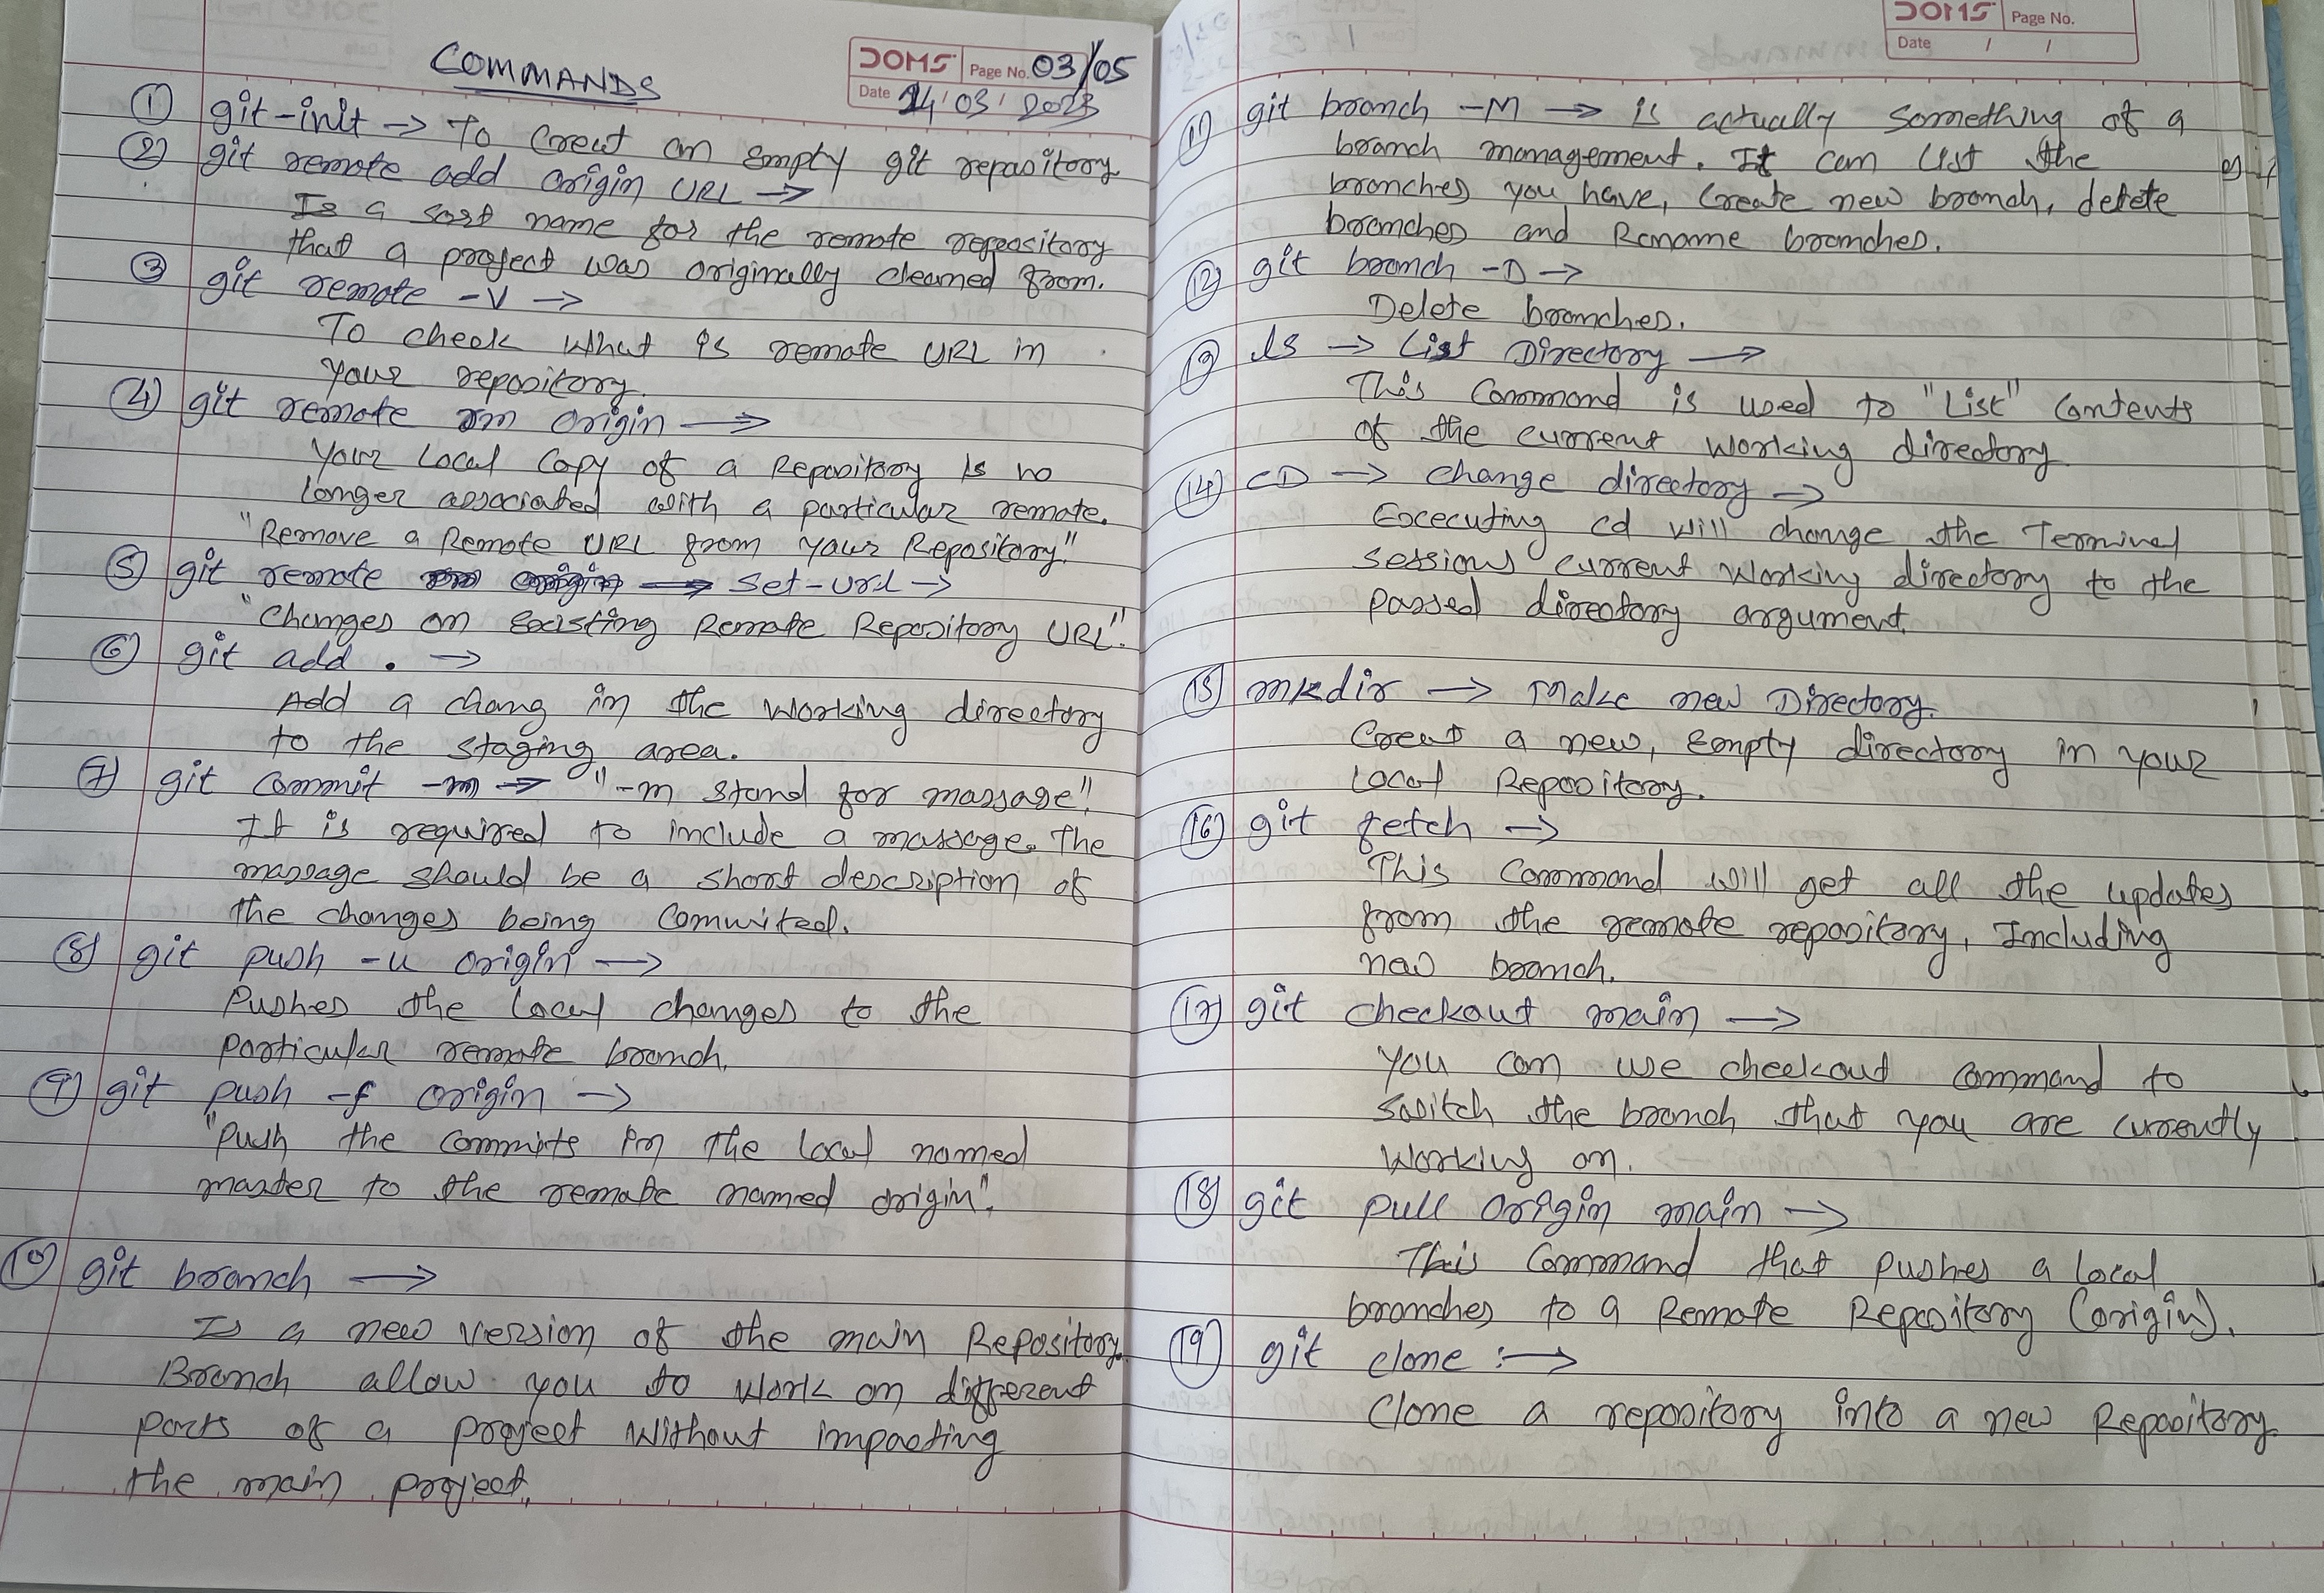 COMMANDS
DOMS Page No. 03/05
Date 14/03/2023
① git-init → To Creat an Empty git repository
② git remote add origin URL →
Is a sort name for the remote repository
that a project was originally cleaned from.
③ git remote -V →
To check what is remote URL in
your repository.
④ git remote rm origin →
Your Local Copy of a Repository is no
longer associated with a particular remote.
"Remove a Remote URL from your Repository."
⑤ git remote rm origin → set-url →
"Changes an Existing Remote Repository URL".
⑥ git add . →
Add a chang in the working directory
to the staging area.
⑦ git commit -m → "-m stand for massage".
It is required to include a massage. The
massage should be a short description of
the changes being commited.
⑧ git push -u origin →
Pushes the Local changes to the
Particular remote branch.
⑨ git push -f origin →
"Push the commits in the Local named
master to the remote named origin".
⑩ git branch →
Is a new version of the main Repository.
Branch allow you to work on different
parts of a project without impacting
the main project.
DOMS Page No.
Date / /
⑪ git branch -M → is actually something of a
branch management. It can list the
branches you have, Create new branch, delete
branches and Rename branches.
⑫ git branch -D →
Delete branches.
⑬ ls → List Directory →
This Command is used to "List" Contents
of the current working directory
⑭ CD → Change directory →
Excecuting cd will change the Terminal
sessions current working directory to the
passed directory argument.
⑮ mkdir → Make new Directory.
Creat a new, Empty directory in your
Local Repository.
⑯ git fetch →
This Command will get all the updates
from the remote repository, Including
new branch.
⑰ git checkout main →
You can use checkout command to
switch the branch that you are currently
working on.
⑱ git pull origin main →
This Command that pushes a local
branches to a Remote Repository (origin).
⑲ git clone :→
Clone a repository into a new Repository